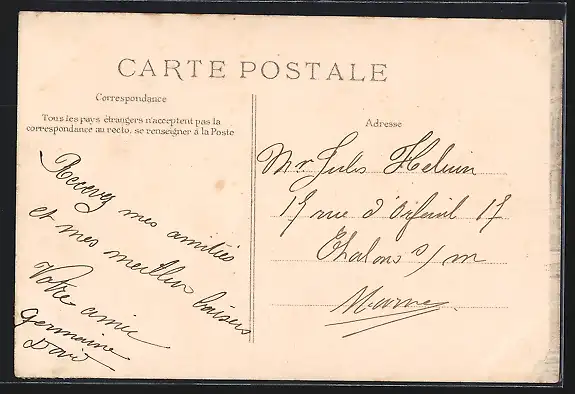 CARTE POSTALE
Correspondance
Tous les pays étrangers n'acceptent pas la
correspondance au recto, se renseigner à la Poste
Recevez mes amitiés
et mes meilleur baisers
Votre amie
Germaine
David
Adresse
Mr Jules Heluin
17 rue d'Orfeuil 17
Chalons s/m
Marne